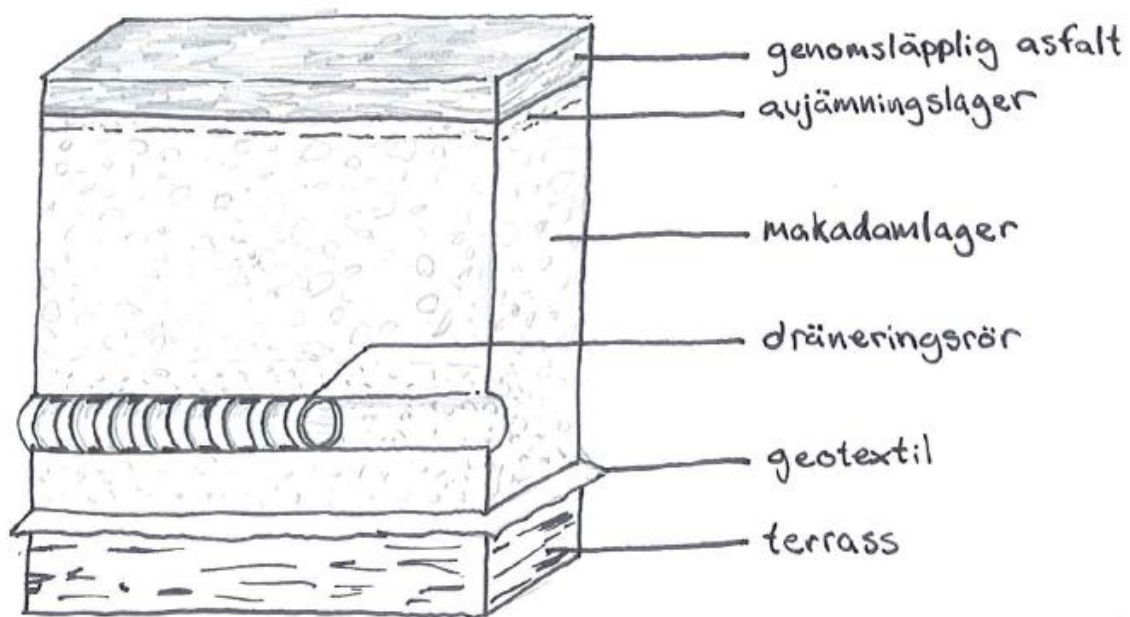 genomsläpplig asfalt
avjämningslager
makadamlager
dräneringsrör
geotextil
terrass